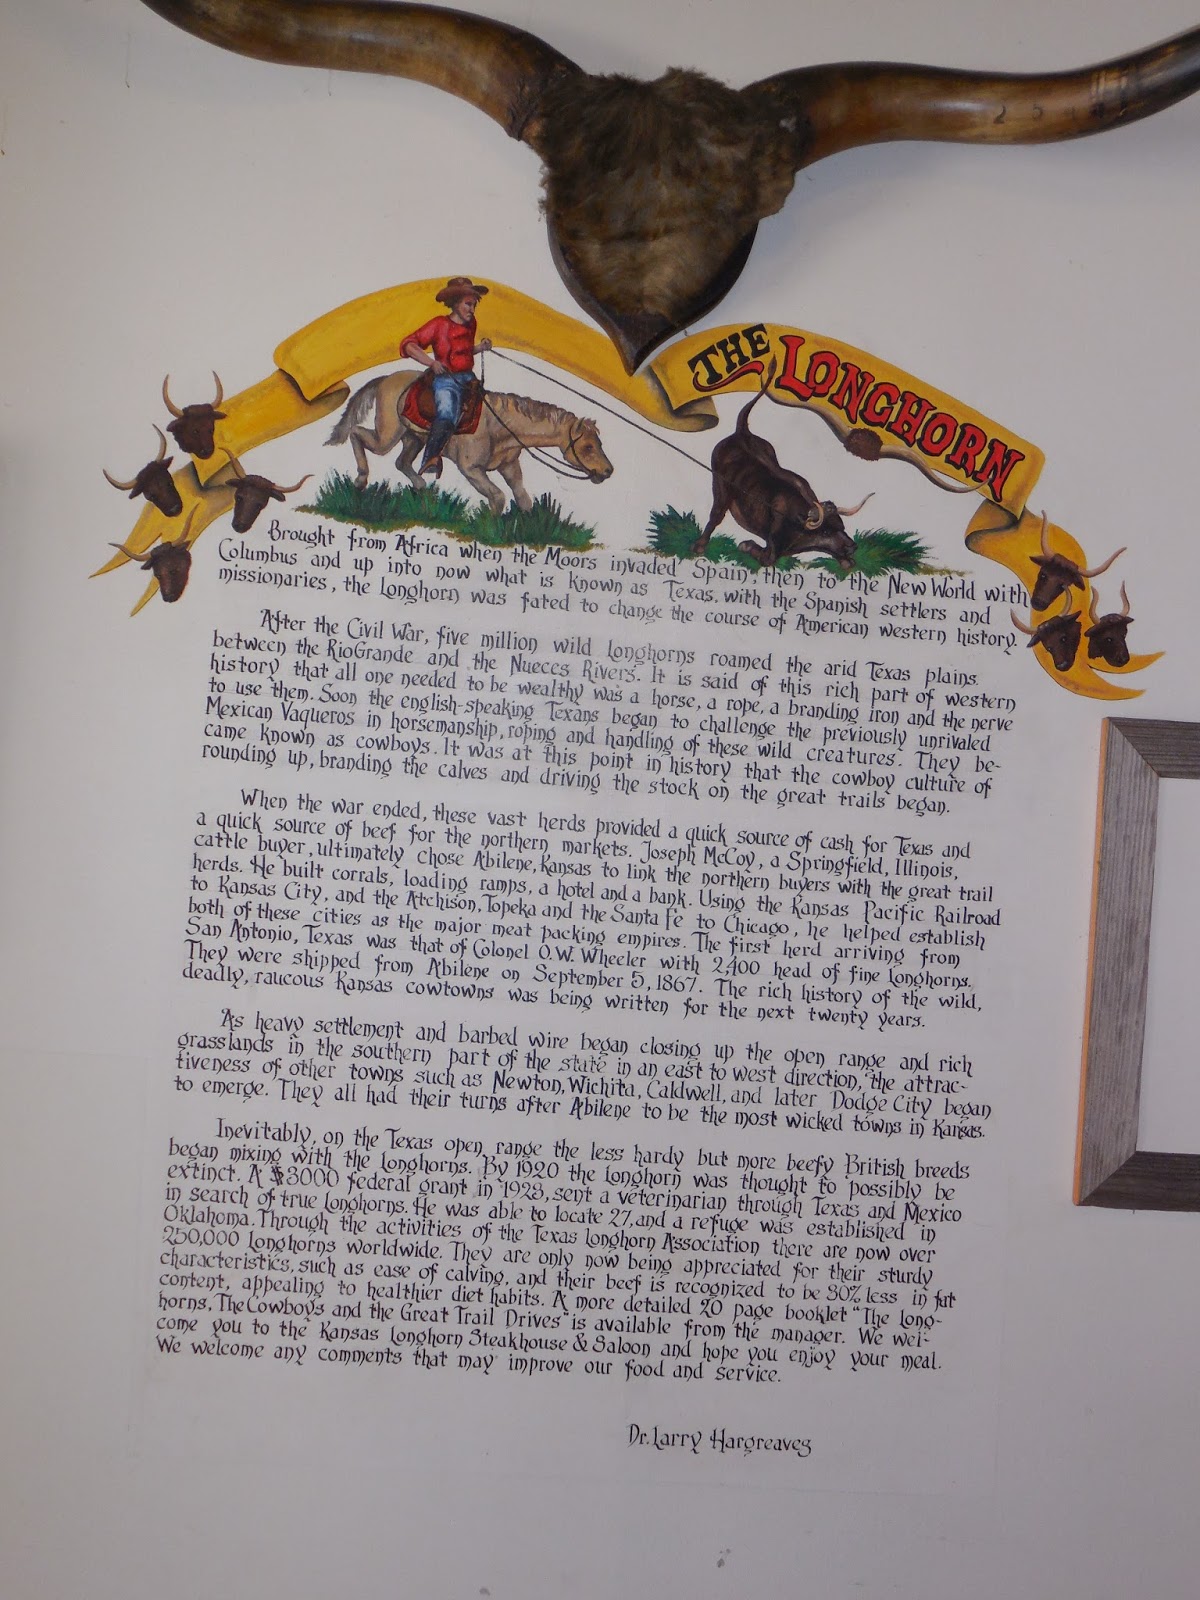 THE LONGHORN
Brought from Africa when the Moors invaded Spain, then to the New World with
Columbus and up into now what is known as Texas, with the Spanish settlers and
missionaries, the Longhorn was fated to change the course of American western history.
After the Civil War, five million wild Longhorns roamed the arid Texas plains
between the Rio Grande and the Nueces Rivers. It is said of this rich part of western
history that all one needed to be wealthy was a horse, a rope, a branding iron and the nerve
to use them. Soon the english-speaking Texans began to challenge the previously unrivaled
Mexican Vaqueros in horsemanship, roping and handling of these wild creatures. They be-
came known as cowboys. It was at this point in history that the cowboy culture of
rounding up, branding the calves and driving the stock on the great trails began.
When the war ended, these vast herds provided a quick source of cash for Texas and
a quick source of beef for the northern markets. Joseph McCoy, a Springfield, Illinois,
cattle buyer, ultimately chose Abilene, Kansas to link the northern buyers with the great trail
herds. He built corrals, loading ramps, a hotel and a bank. Using the Kansas Pacific Railroad
to Kansas City, and the Atchison, Topeka and the Santa Fe to Chicago, he helped establish
both of these cities as the major meat packing empires. The first herd arriving from
San Antonio, Texas was that of Colonel O.W. Wheeler with 2,400 head of fine Longhorns.
They were shipped from Abilene on September 5, 1867. The rich history of the wild,
deadly, raucous Kansas cowtowns was being written for the next twenty years.
As heavy settlement and barbed wire began closing up the open range and rich
grasslands in the southern part of the state in an east to west direction, the attrac-
tiveness of other towns such as Newton, Wichita, Caldwell, and later Dodge City began
to emerge. They all had their turns after Abilene to be the most wicked towns in Kansas.
Inevitably, on the Texas open range the less hardy but more beefy British breeds
began mixing with the Longhorns. By 1920 the Longhorn was thought to possibly be
extinct. A $3000 federal grant in 1928, sent a veterinarian through Texas and Mexico
in search of true Longhorns. He was able to locate 27, and a refuge was established in
Oklahoma. Through the activities of the Texas Longhorn Association there are now over
250,000 Longhorns worldwide. They are only now being appreciated for their sturdy
characteristics, such as ease of calving, and their beef is recognized to be 30% less in fat
content, appealing to healthier diet habits. A more detailed 20 page booklet "The Long-
horns, The Cowboys and the Great Trail Drives" is available from the manager. We wel-
come you to the Kansas Longhorn Steakhouse & Saloon and hope you enjoy your meal.
We welcome any comments that may improve our food and service.
Dr. Larry Hargreaves